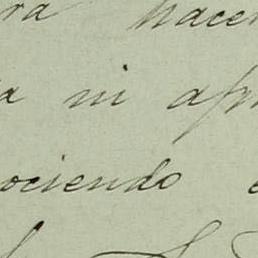 ra hacer
a ni apr
ociendo e